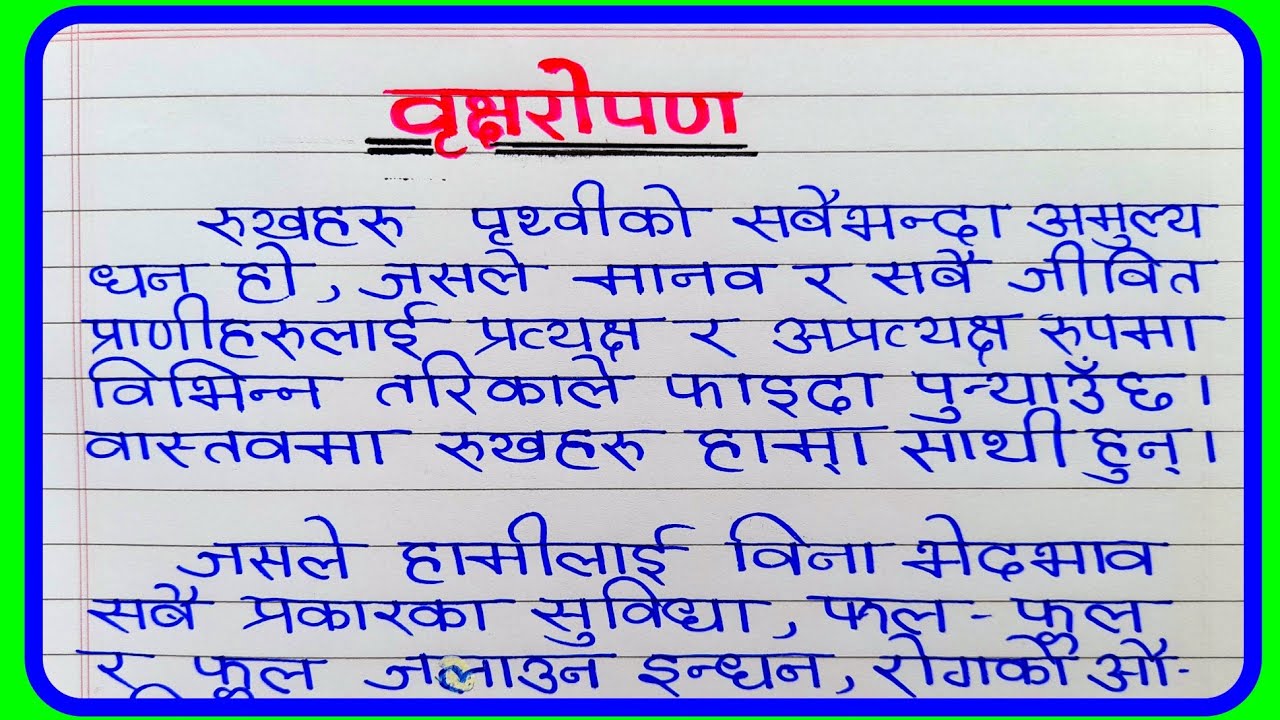 वृक्षरोपण
रुखहरु पृथ्वीको सबैभन्दा अमुल्य
धन हो, जसले मानव र सबै जीवित
प्राणीहरुलाई प्रत्यक्ष र अप्रत्यक्ष रुपमा
विभिन्न तरिकाले फाइदा पुन्याउँछ।
वास्तवमा रुखहरु हाम्रा साथी हुन्।
जसले हामीलाई विना भेदभाव
सबै प्रकारका सुविधा, फल-फूल
र फूल जलाउन इन्धन, रोगको औ-